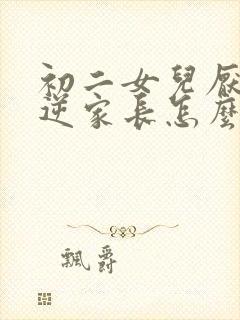 初二女兒厭
逆家長怎麼
飄爵